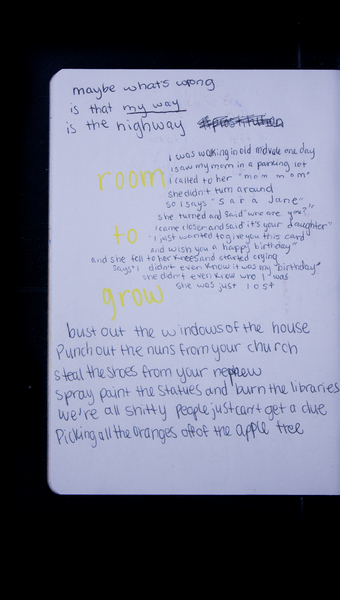 maybe what's wrong
is that my way
is the highway
i was walking in old mdvale one day
i saw my mom in a parking lot
i called to her "mom mom"
she didn't turn around
so i says "sara Jane"
she turned and said "who are you?"
i came closer and said "it's your daughter"
"i just wanted to give you this card
and wish you a happy birthday"
and she fell to her knees and started crying
says "i didn't even know it was my birthday"
she didn't even know who I was
she was just lost
room
to
grow
bust out the windows of the house
Punch out the nuns from your church
steal the shoes from your nephew
spray paint the statues and burn the libraries
we're all shitty people just can't get a clue
Picking all the oranges off of the apple tree